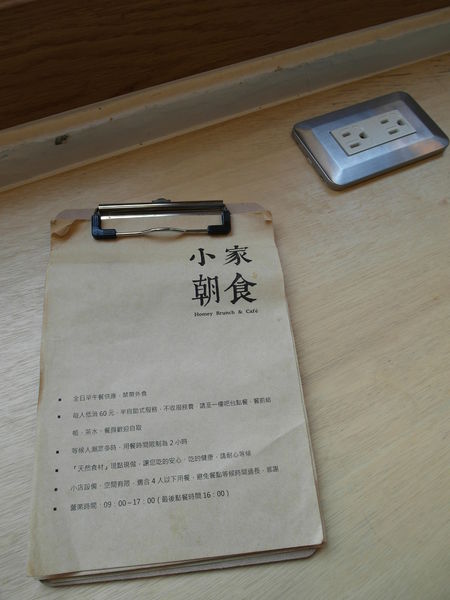 小家
朝食
Homey Brunch & Café
▪ 全日早午餐供應，禁帶外食
▪ 每人低消 60 元，半自助式服務，不收服務費，請至一樓吧台點餐、餐前結
帳，茶水、餐具歡迎自取
▪ 等候人潮眾多時，用餐時間限制為 2 小時
▪ 「天然食材」現點現做，讓您吃的安心、吃的健康，請耐心等候
▪ 小店設備、空間有限，適合 4 人以下用餐，避免餐點等候時間過長，感謝
▪ 營業時間：09：00~17：00 ( 最後點餐時間 16：00 )